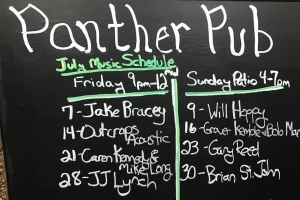 Panther Pub
July Music Schedule
Friday 9pm-12
7-Jake Bracey
14-Outcrops Acoustic
21-Caren Kennedy & Mike Long
28-JJ Lynch
Sunday Patio 4-7pm
9-Will Hoppy
16-Grover Kemble & Bob
23-Gary Reed
30-Brian St. John